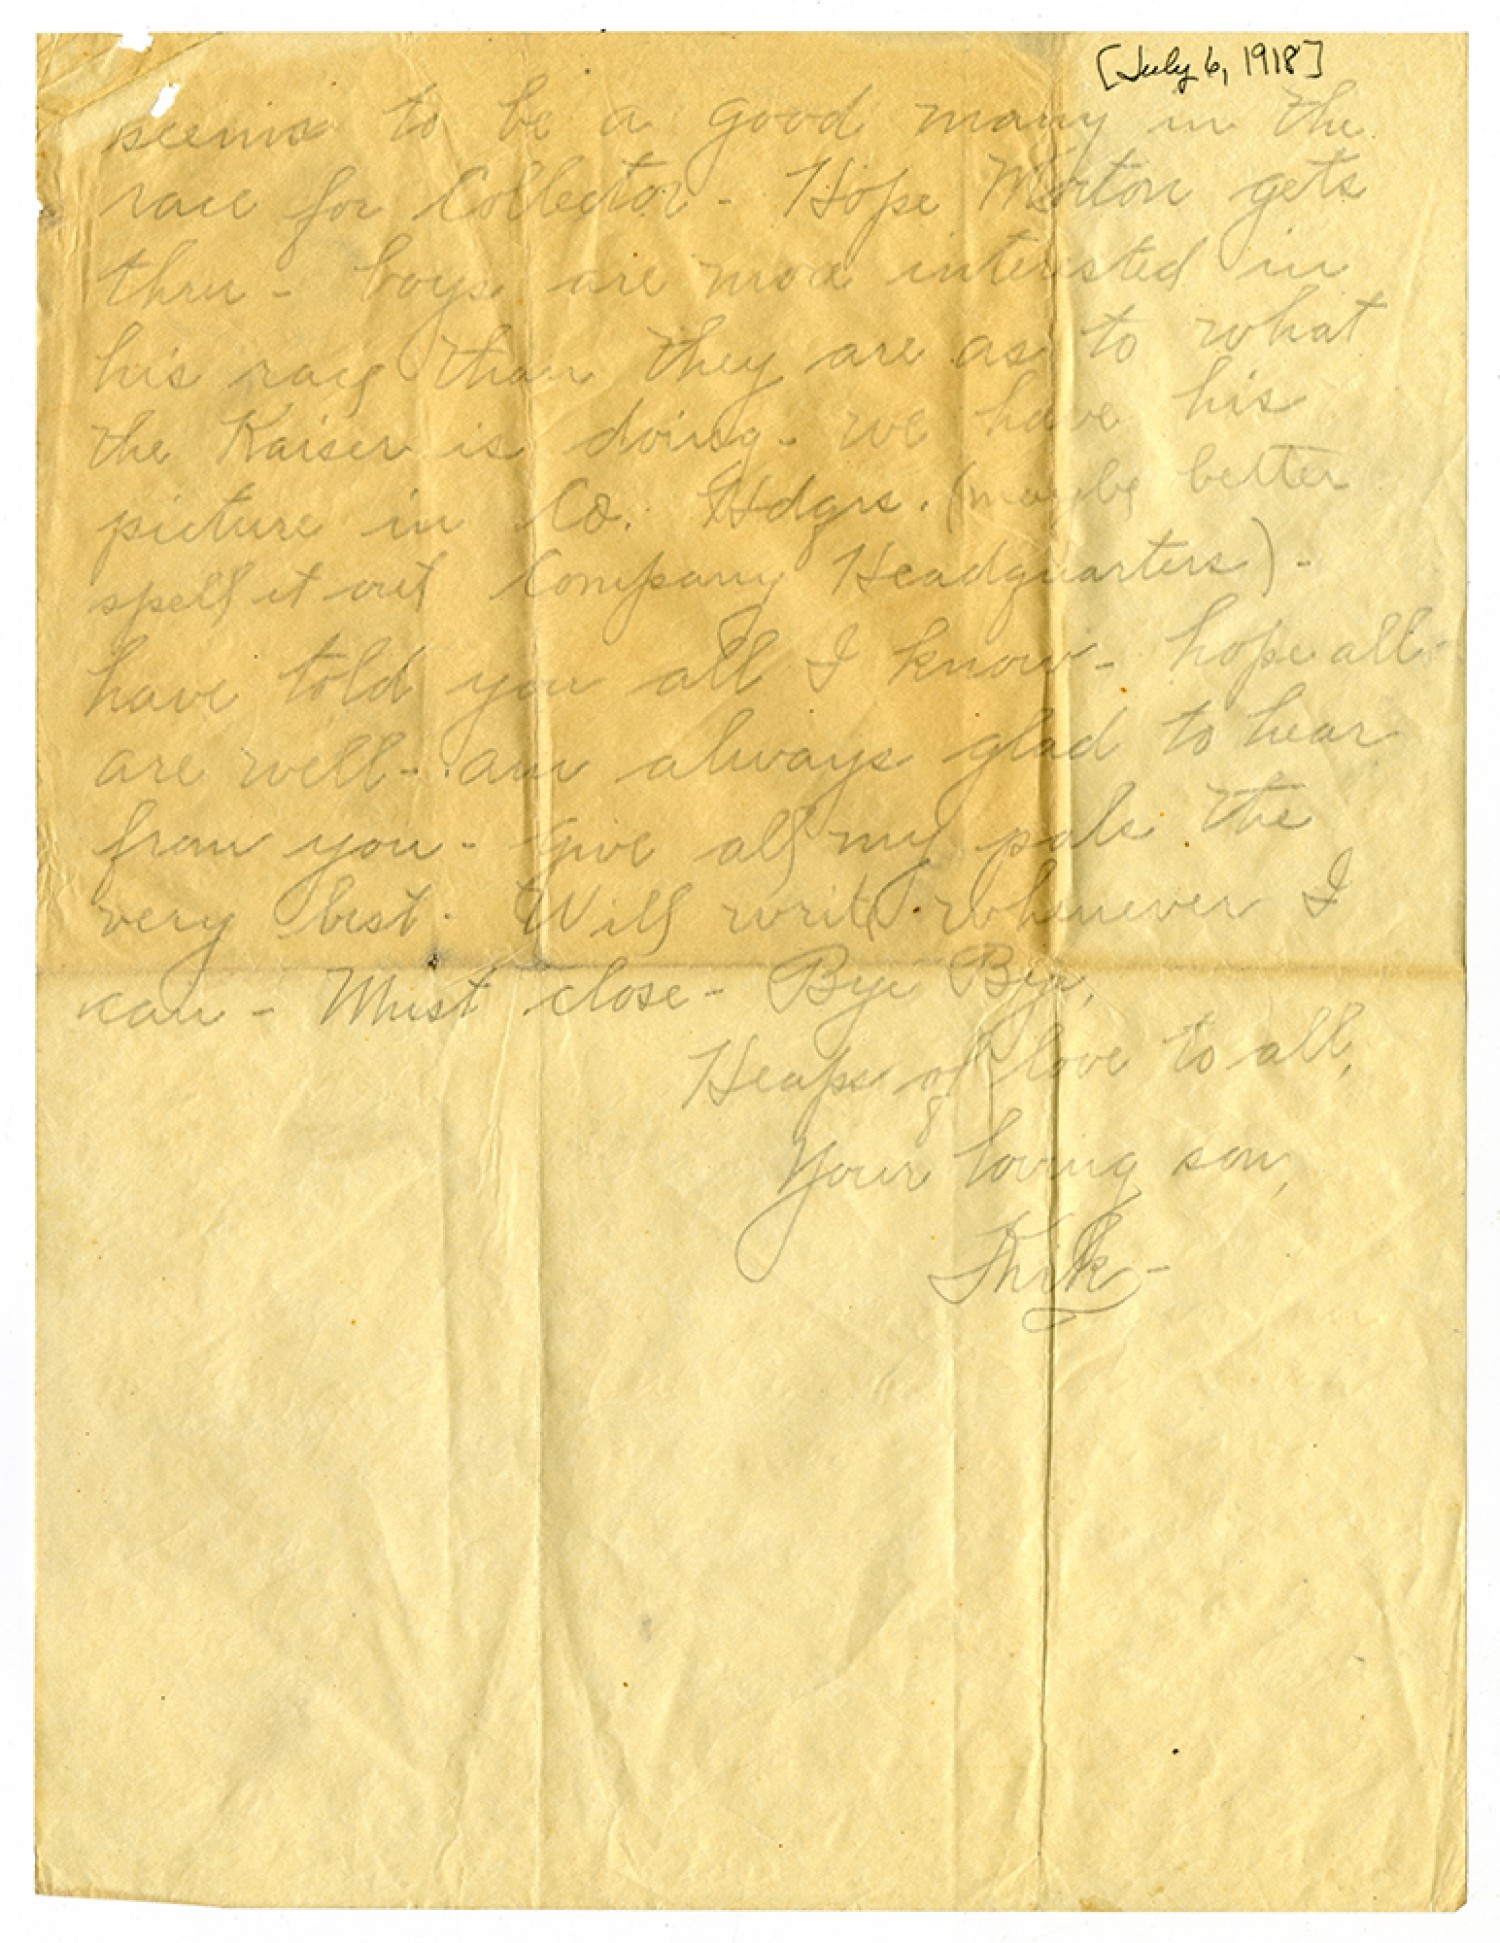 [July 6, 1918]
seems to be a good many in the
race for Collector - Hope Morton gets
thru - boys are more interested in
his race than they are as to what
the Kaiser is doing - we have his
picture in Co. Hdqrs. (maybe better
spell it out Company Headquarters) -
have told you all I know - hope all
are well - am always glad to hear
from you - Give all my pals the
very best. Will write whenever I
can - Must close - Bye Bye,
Heaps of love to all,
Your loving son,